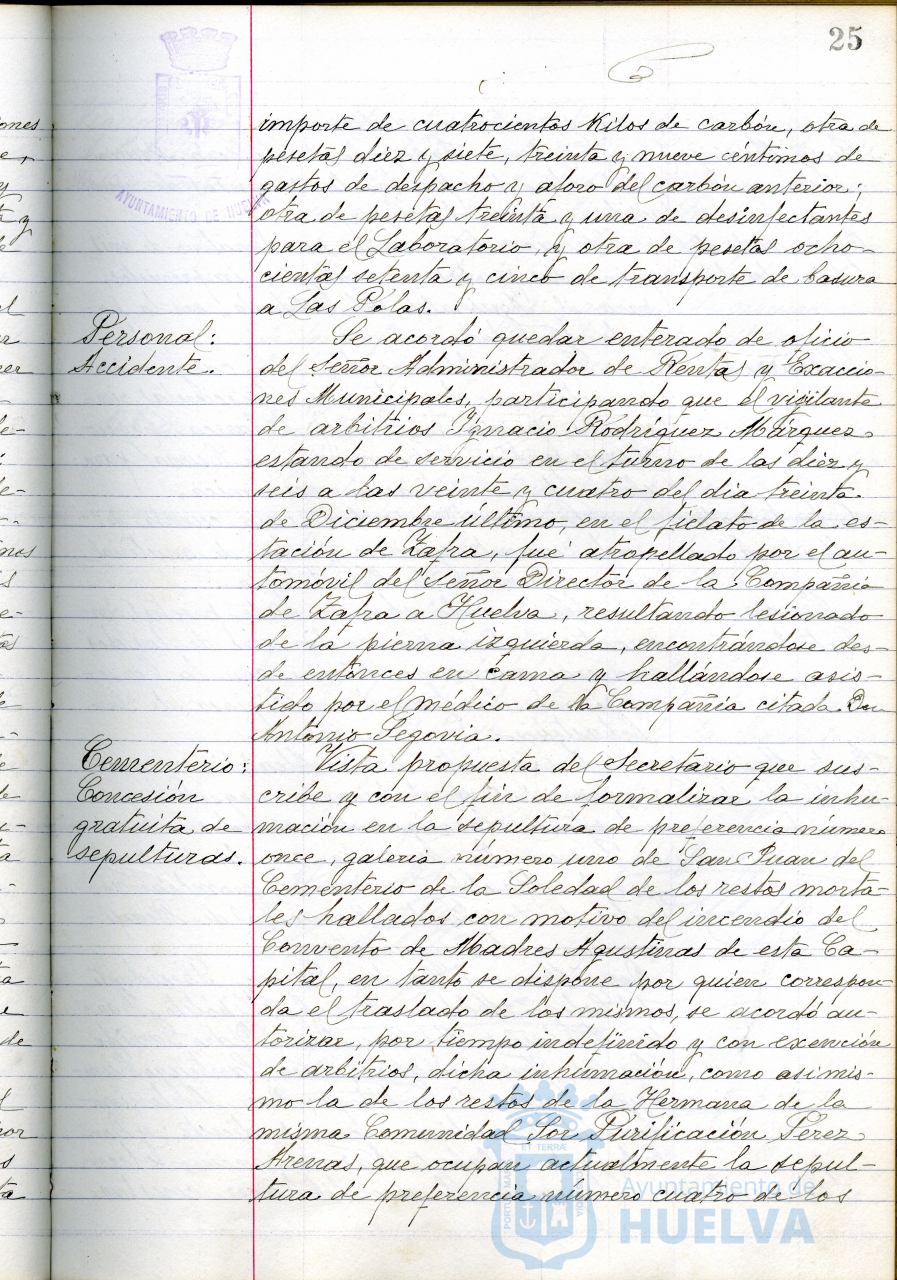 25
AYUNTAMIENTO DE HUELVA
importe de cuatrocientos Kilos de carbón, otra de
pesetas diez y siete, treinta y nueve céntimos de
gastos de despacho y aforo del carbón anterior;
otra de pesetas treinta y una de desinfectantes
para el Laboratorio, y otra de pesetas ocho-
cientas setenta y cinco de transporte de basura
a Las Polas.
Personal:
Accidente.
Se acordó quedar enterado de oficio
del Señor Administrador de Rentas y Exaccio-
nes Municipales, participando que el vigilante
de arbitrios Ignacio Rodríguez Márquez
estando de servicio en el turno de las diez y
seis a las veinte y cuatro del dia treinta
de Diciembre último, en el fielato de la es-
tación de Zafra, fué atropellado por el au-
tomóvil del Señor Director de la Compañia
de Zafra a Huelva, resultando lesionado
de la pierna izquierda, encontrándose des-
de entonces en cama y hallándose asis-
tido por el médico de la Compañia citada Don
Antonio Segovia.
Cementerio:
Concesión
gratuita de
sepulturas.
Vista propuesta del Secretario que sus-
cribe y con el fin de formalizar la inhu-
mación en la sepultura de preferencia número
once, galeria número uno de San Juan del
Cementerio de la Soledad de los restos morta-
les hallados con motivo del incendio del
Convento de Madres Agustinas de esta Ca-
pital, en tanto se dispone por quien correspon-
da el traslado de los mismos, se acordó au-
torizar, por tiempo indefinido y con exención
de arbitrios, dicha inhumación, como asimis-
mo la de los restos de la Hermana de la
misma Comunidad Sor Purificación Pérez
Arenas, que ocupan actualmente la sepul-
tura de preferencia número cuatro de los
Ayuntamiento de
HUELVA